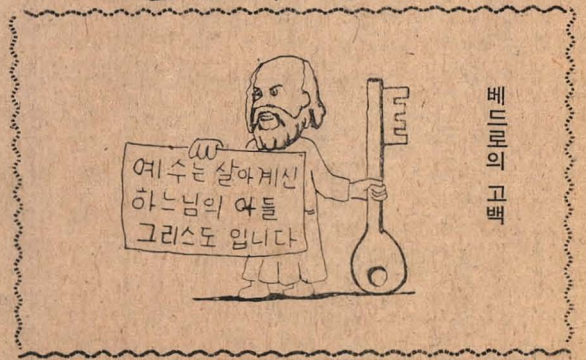 베드로의 고백
예수는 살아계신
하느님의 아들
그리스도 입니다